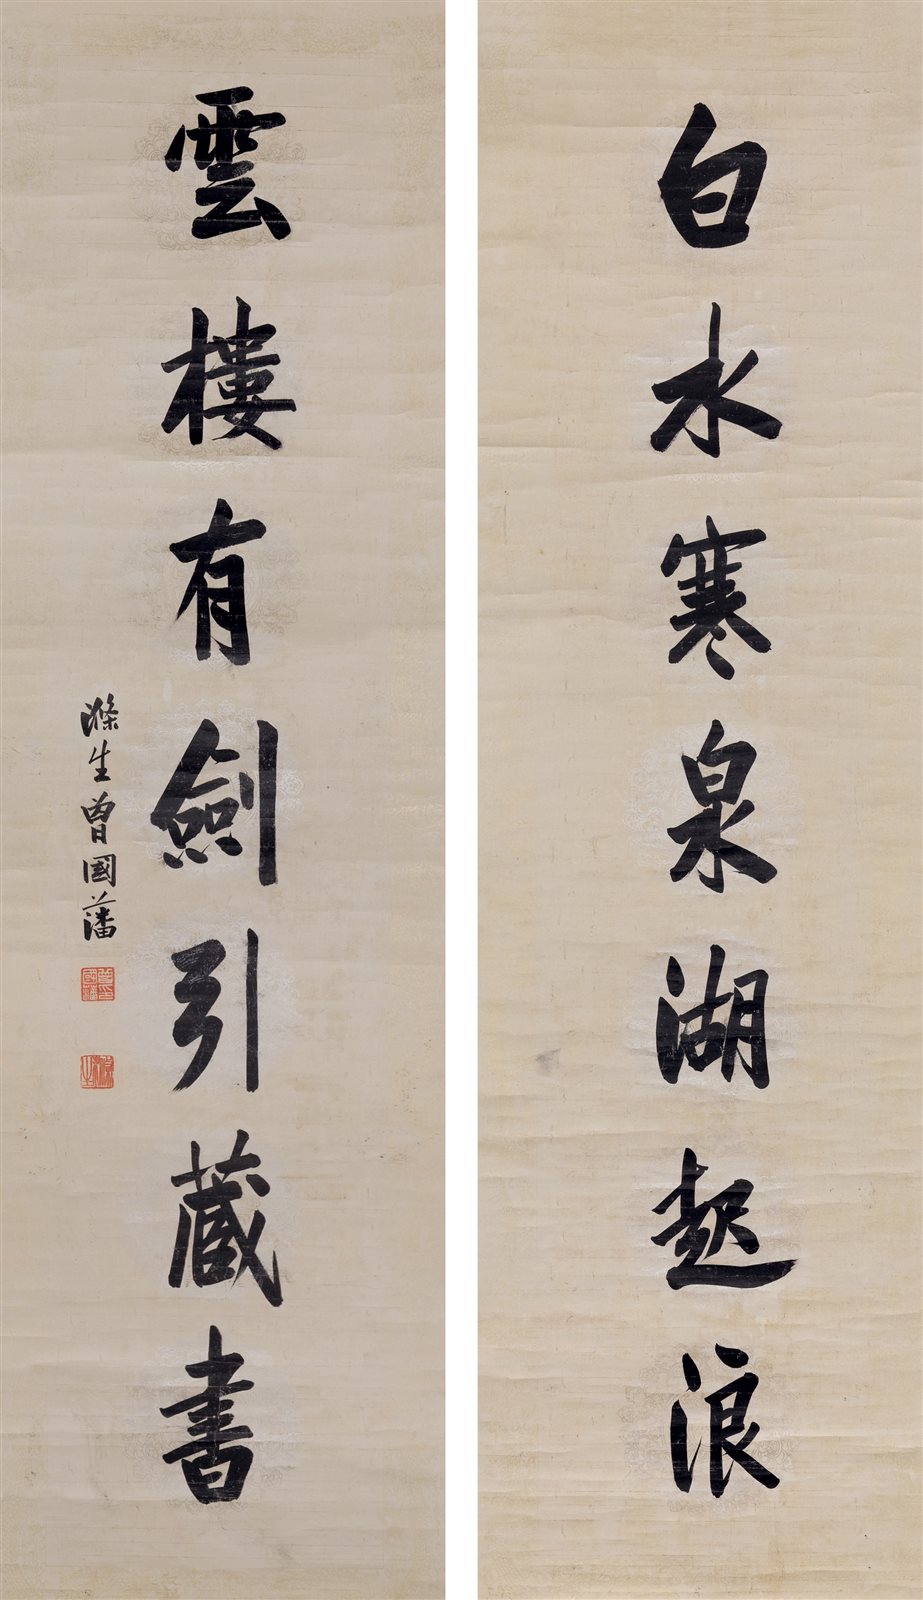 白水寒泉湖起浪
雲樓有劍引藏書
滌生曾國藩